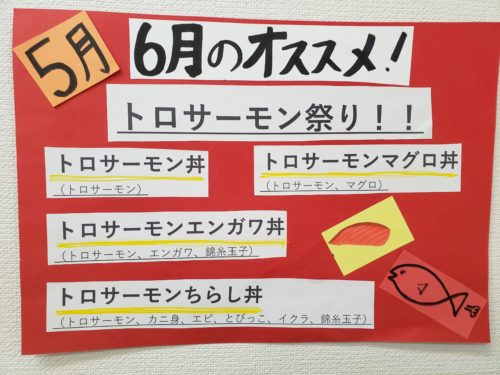 5月
6月のオススメ!
トロサーモン祭り！！
トロサーモン丼
（トロサーモン）
トロサーモンマグロ丼
（トロサーモン、マグロ）
トロサーモンエンガワ丼
（トロサーモン、エンガワ、錦糸玉子）
トロサーモンちらし丼
（トロサーモン、カニ身、エビ、とびっこ、イクラ、錦糸玉子）